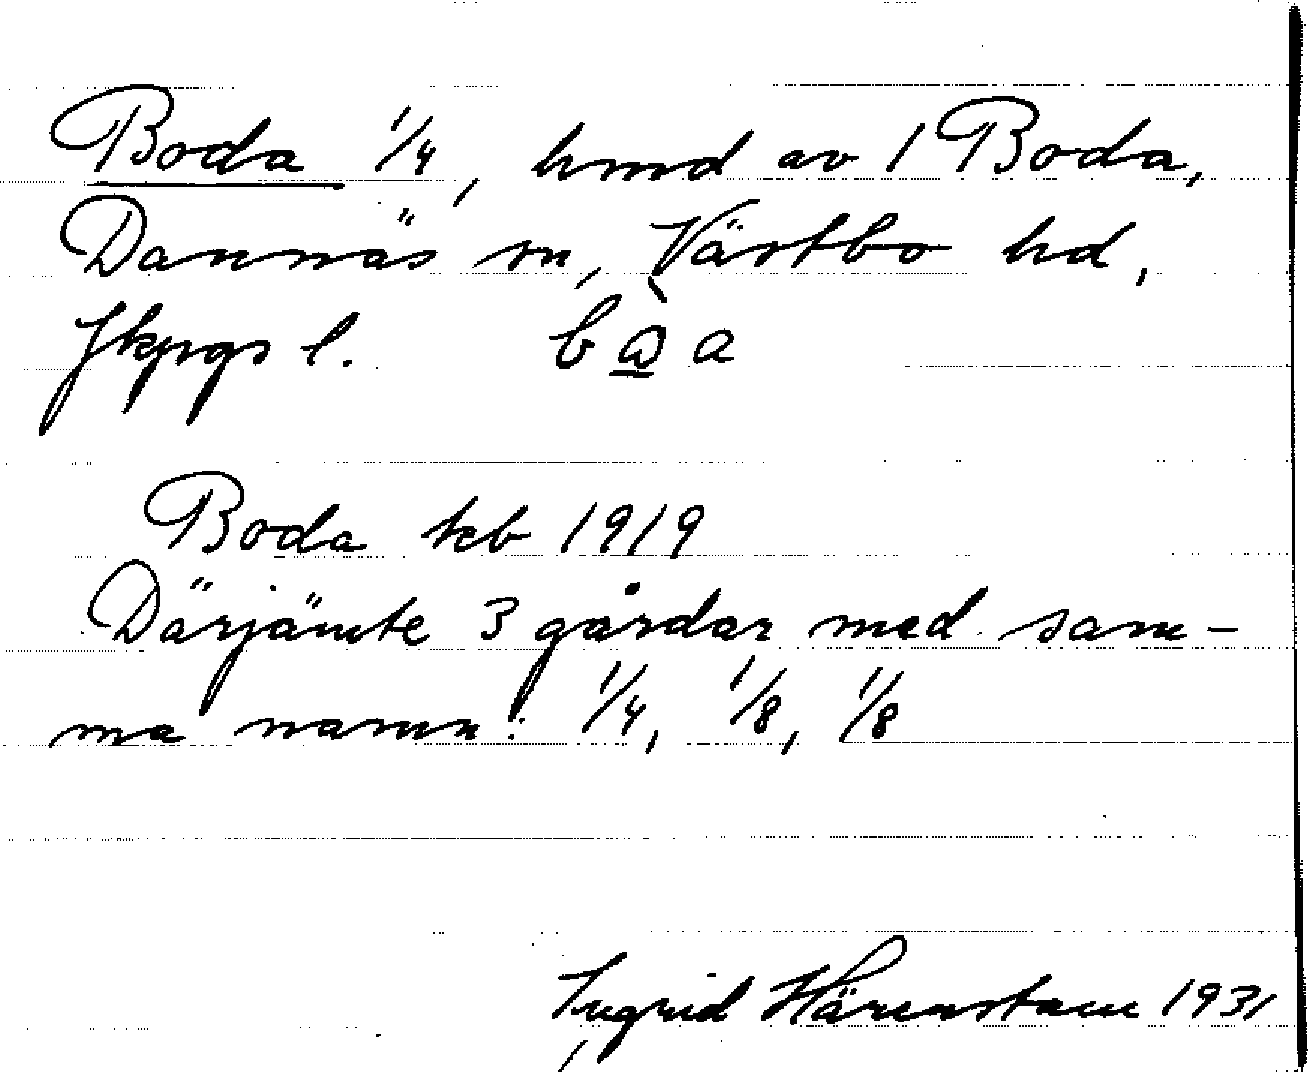 Boda 1/4, hmd av 1 Boda,
Dannäs sn, Västbo hd,
Jkpgs l. b a
Boda kb 1919
Därjämte 3 gårdar med sam-
ma namn: 1/4, 1/8, 1/8
Ingrid Härenstam 1931